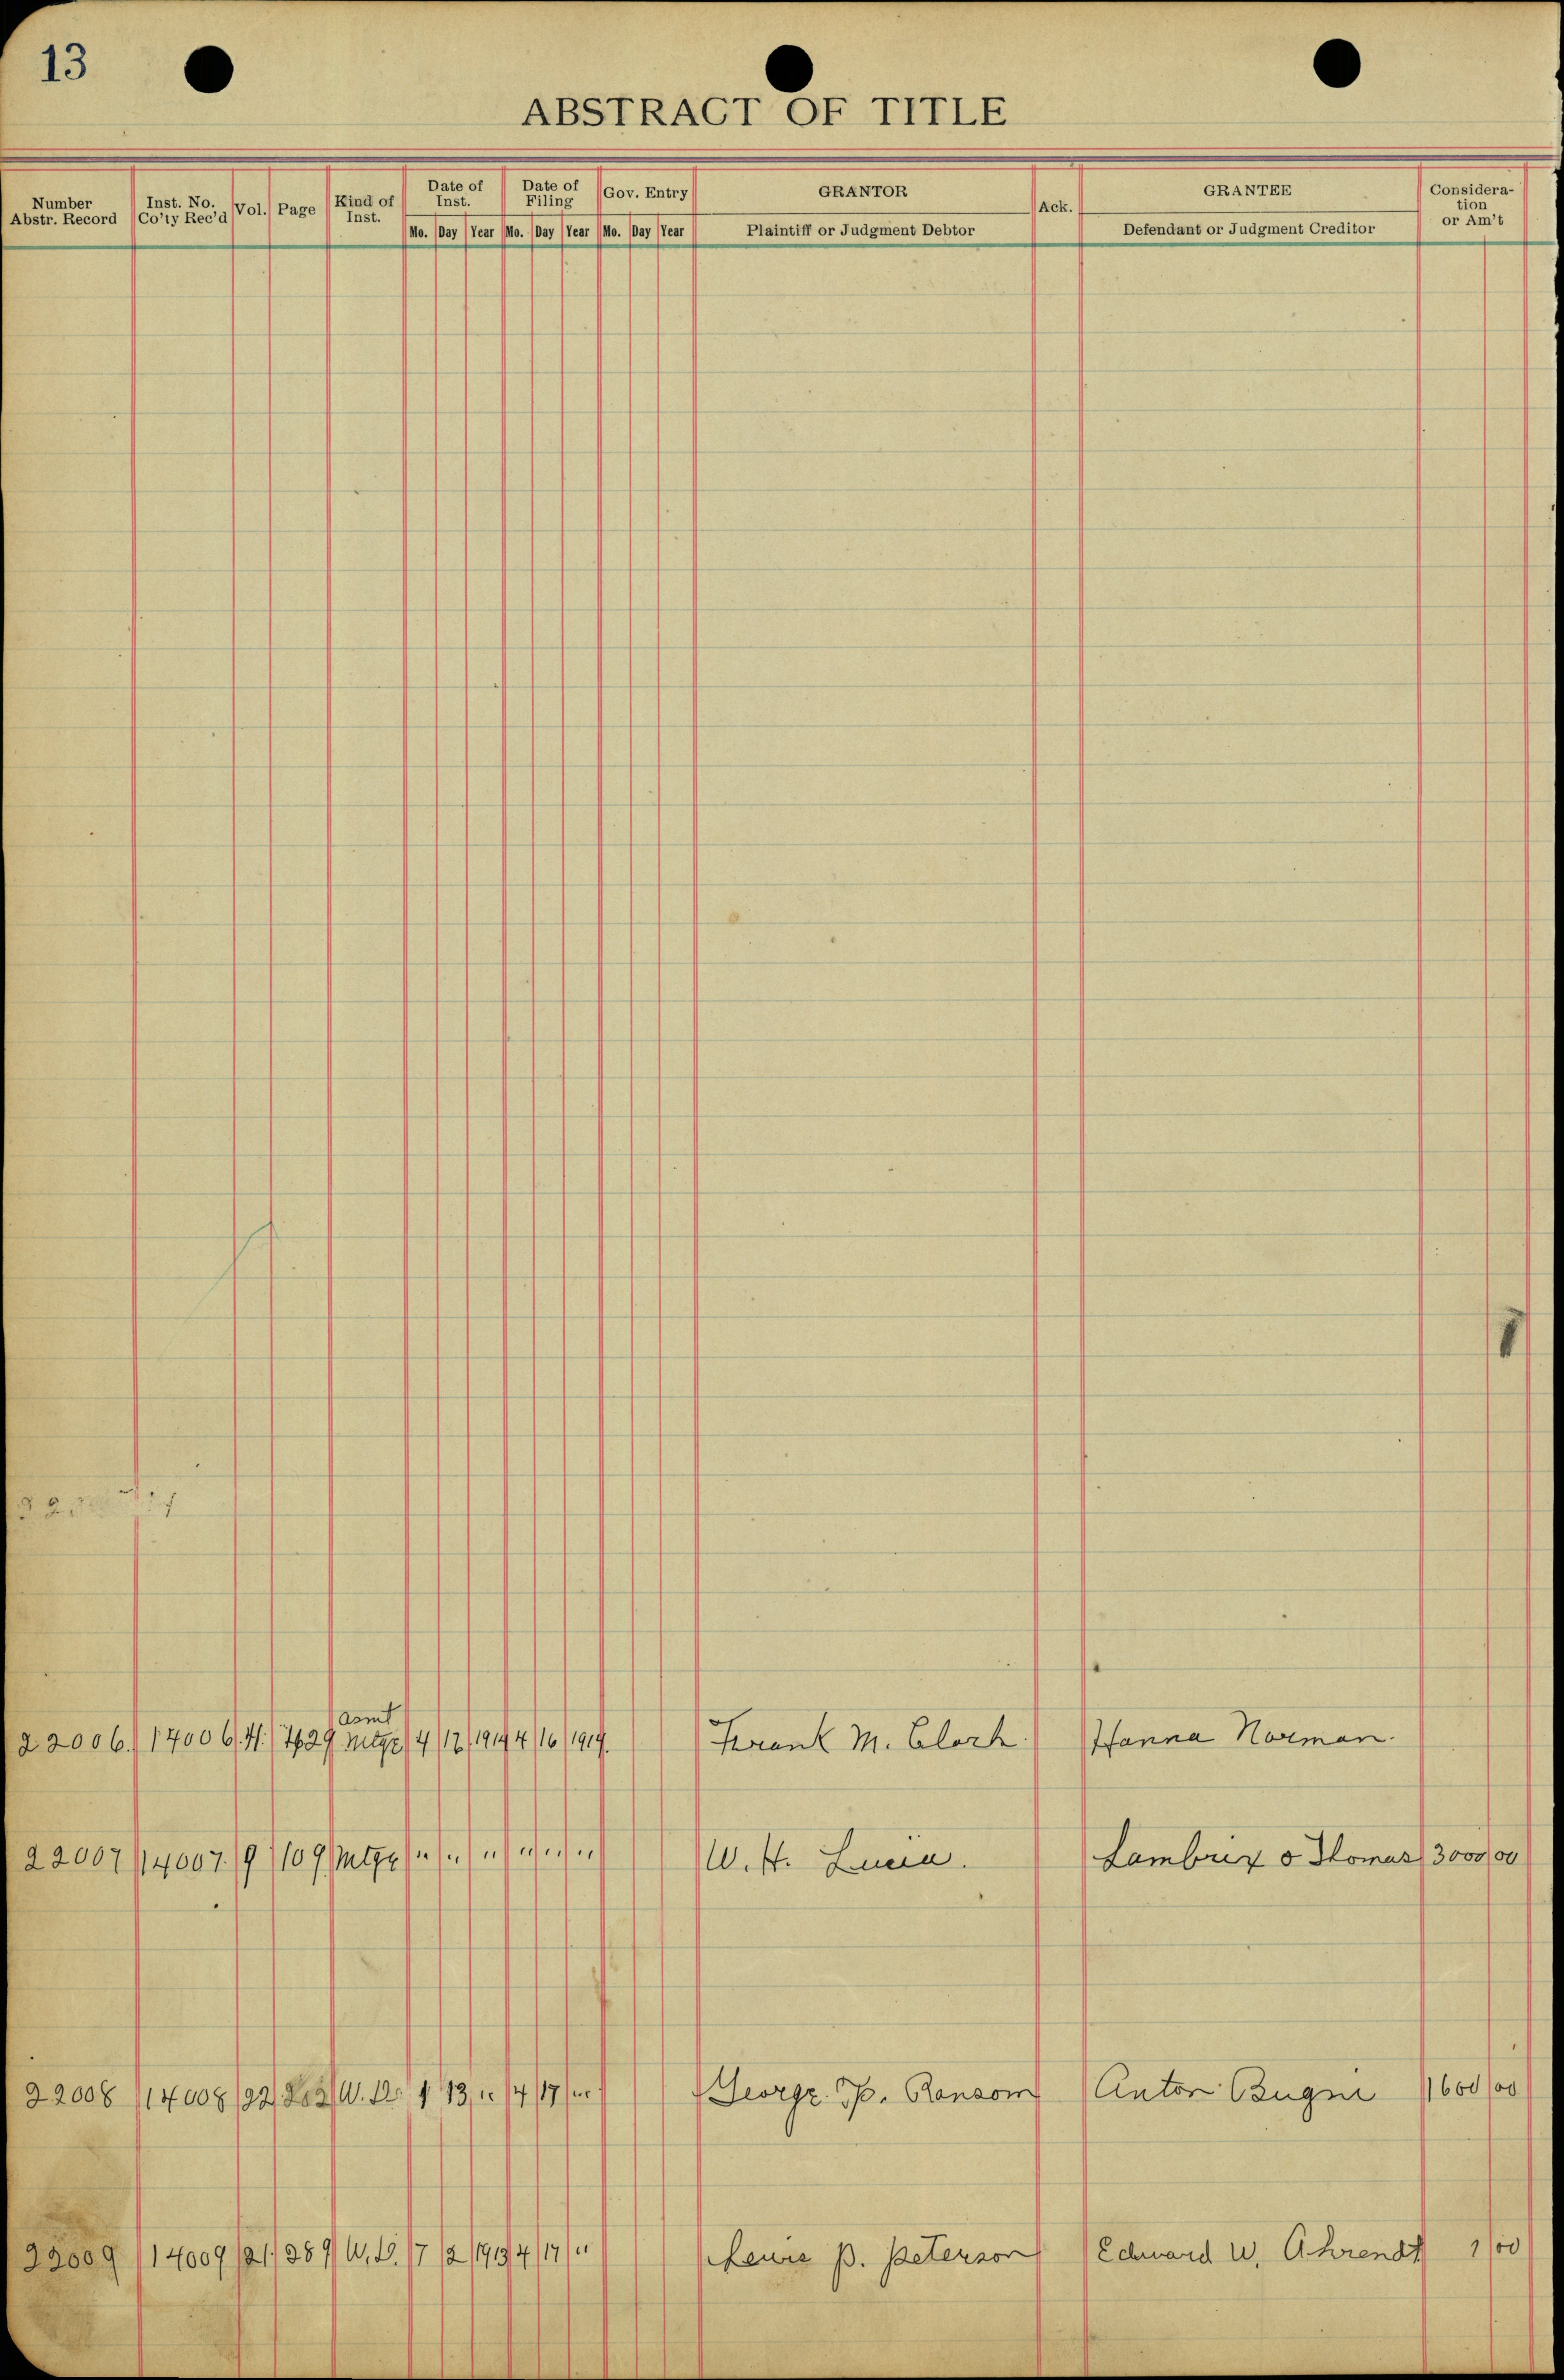 13
ABSTRACT OF TITLE
Number Abstr. Record Inst. No. Co'ty Rec'd Vol. Page Kind of Inst. Date of Inst. Date of Filing Gov. Entry GRANTOR Ack. GRANTEE Considera-tion or Am't
Mo. Day Year Mo. Day Year Mo. Day Year Plaintiff or Judgment Debtor Defendant or Judgment Creditor
Asmt
22006. 14006 Mtge 4 1914 4 16 1914. Frank M. Hanna Norman.
22007 14007. 9 109 Mtge " " " " " " W. H. Lambrix & Thomas 3000 00
22008 14008 22 W. D. 1 13 " 4 17 " George P. Ransom Anton Bugni 1600 00
22009 14009 21 289 W. D. 7 2 1913 4 17 " Lewis P. Peterson Edward W. Ahrendt 1 00